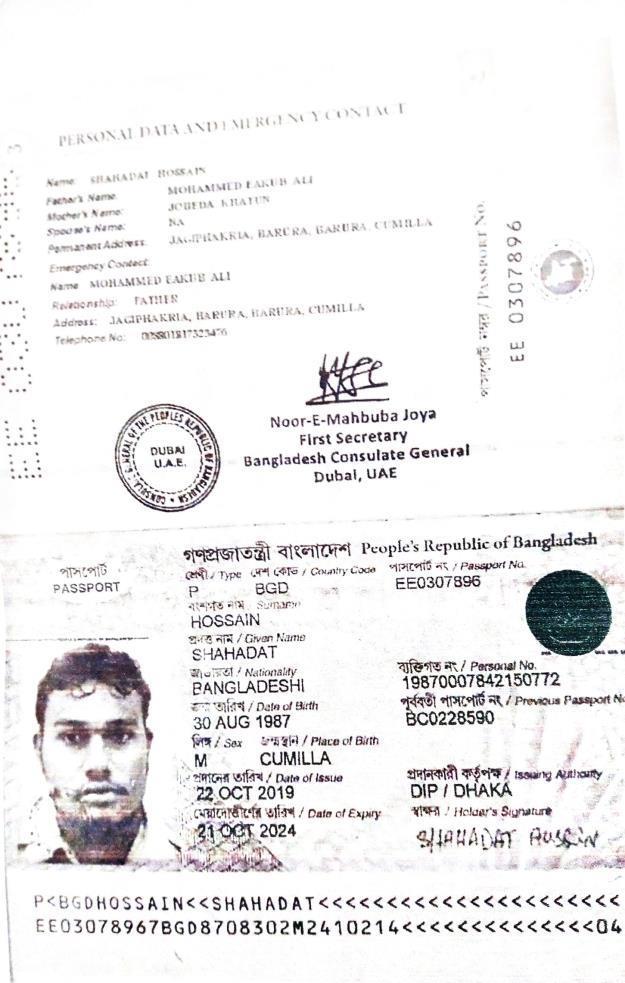 PERSONAL DATA AND EMERGENCY CONTACT
Name: SHAHADAT HOSSAIN
Father's Name: MOHAMMED EAKUB ALI
Mother's Name: JOBEDA KHATUN
Spouse's Name: NA
Permanent Address: JAGIPHAKRIA, BARURA, BARURA, CUMILLA
Emergency Contact:
Name MOHAMMED EAKUB ALI
Relationship: FATHER
Address: JAGIPHAKRIA, BARURA, BARURA, CUMILLA
Telephone No:
পাসপোর্ট নম্বর / PASSPORT No.
EE 0307896
DUBAI
U.A.E.
Noor-E-Mahbuba Joya
First Secretary
Bangladesh Consulate General
Dubai, UAE
গণপ্রজাতন্ত্রী বাংলাদেশ People's Republic of Bangladesh
পাসপোর্ট
PASSPORT
শ্রেণী / Type দেশ কোড / Country Code পাসপোর্ট নং / Passport No.
P BGD EE0307896
বংশগত নাম Surname
HOSSAIN
প্রদত্ত নাম / Given Name
SHAHADAT
জাতীয়তা / Nationality ব্যক্তিগত নং / Personal No.
BANGLADESHI 19870007842150772
জন্ম তারিখ / Date of Birth পূর্ববর্তী পাসপোর্ট নং / Previous Passport No
30 AUG 1987 BC0228590
লিঙ্গ / Sex জন্মস্থান / Place of Birth
M CUMILLA
প্রদানের তারিখ / Date of Issue প্রদানকারী কর্তৃপক্ষ / Issuing Authority
22 OCT 2019 DIP / DHAKA
মেয়াদোত্তীর্ণের তারিখ / Date of Expiry স্বাক্ষর / Holder's Signature
21 OCT 2024 SHAHADAT HOSSAIN
P<BGDHOSSAIN<<SHAHADAT<<<<<<<<<<<<<<<<<<<<<<
EE03078967BGD8708302M2410214<<<<<<<<<<<<<<04